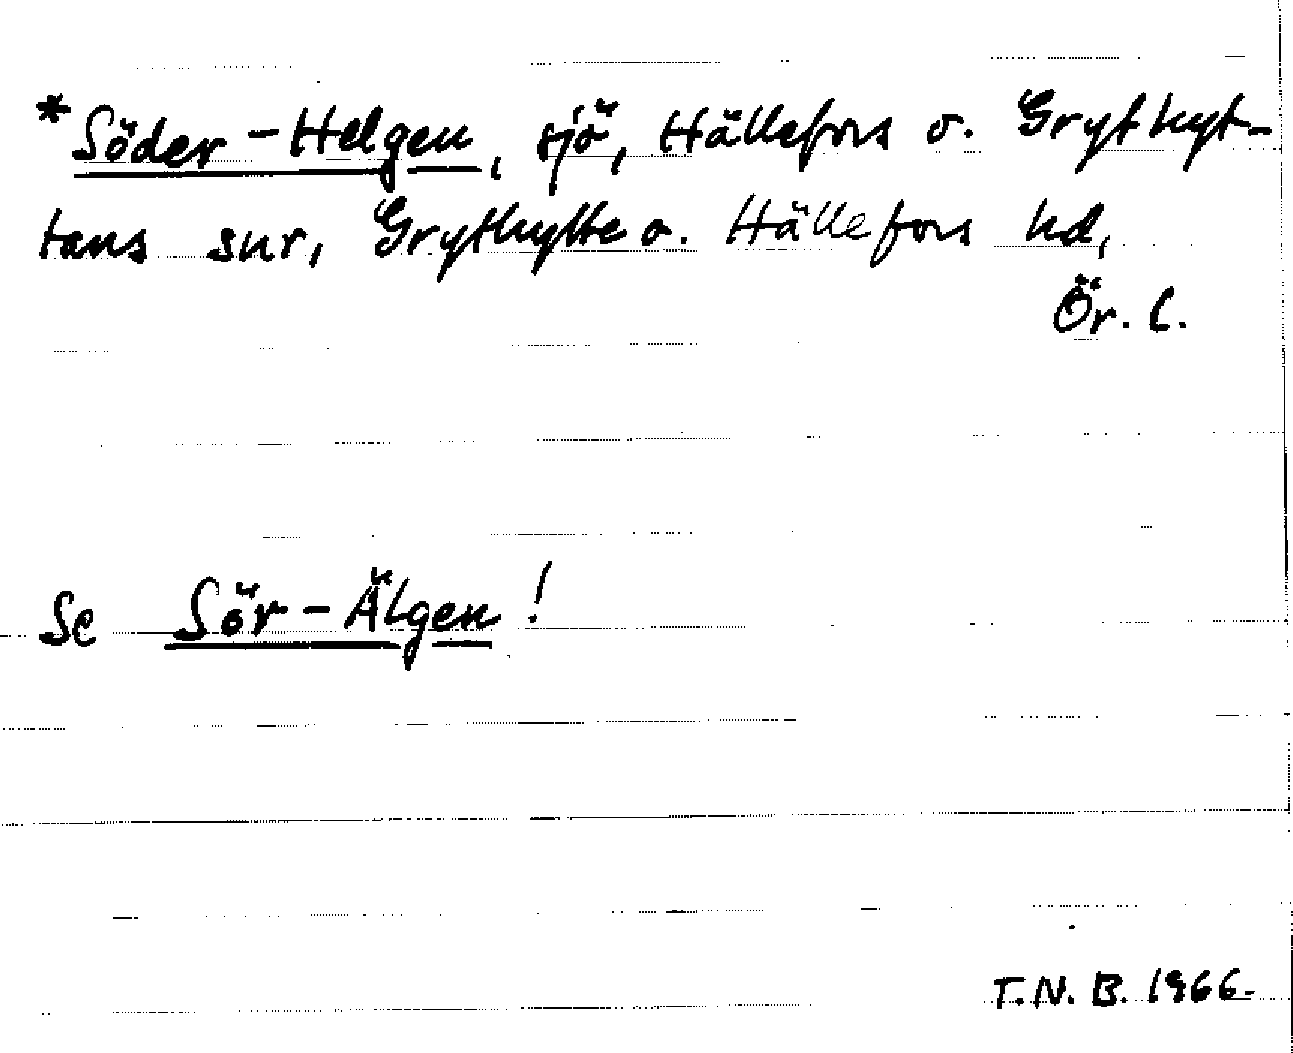 *Söder-Helgen, sjö, Hällefors o. Grythyt-
tans snr, Grythytte o. Hällefors hd,
Ör. l.
Se Sör-Älgen!
T.N.B. 1966.